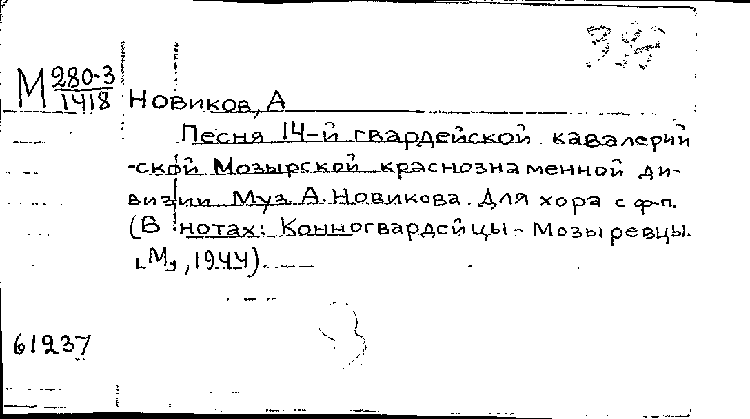 М 280-3
1418
Новиков, А
Песня 14-й гвардейской кавалерий
-ской Мозырской краснознаменной ди-
визии Муз А. Новикова. Для хора с ф-п.
(В нотах: Конногвардейцы - Мозыревцы.
[М., 1944).
61237